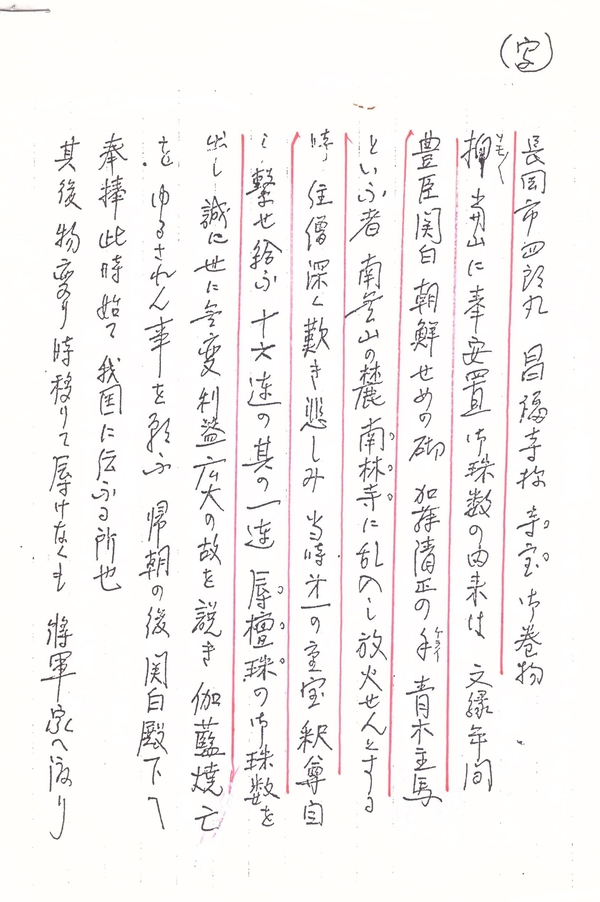 (写)
長岡市四郎丸 昌福寺様 寺宝御巻物
抑当山に奉安置御珠数の由来は 文緑年間
ソモソモ
豊臣関白 朝鮮せめの砌 加藤清正の手 青木主馬
ケライ
といふ者 南無山の麓 南林寺に乱入し放火せんとする
時 住僧深く歎き悲しみ 当時第一の重宝 釈尊自
ら繋せ給ふ 十六連の其の一連 辱檀珠の御珠数を
出し 誠に世に無変利益広大の故を説き 伽藍焼亡
を ゆるされん事を願ふ 帰朝の後 関白殿下へ
奉捧 此時始て 我国に伝ふる所也
其後 物変り時移りて 辱けなくも 将軍家へ渡り